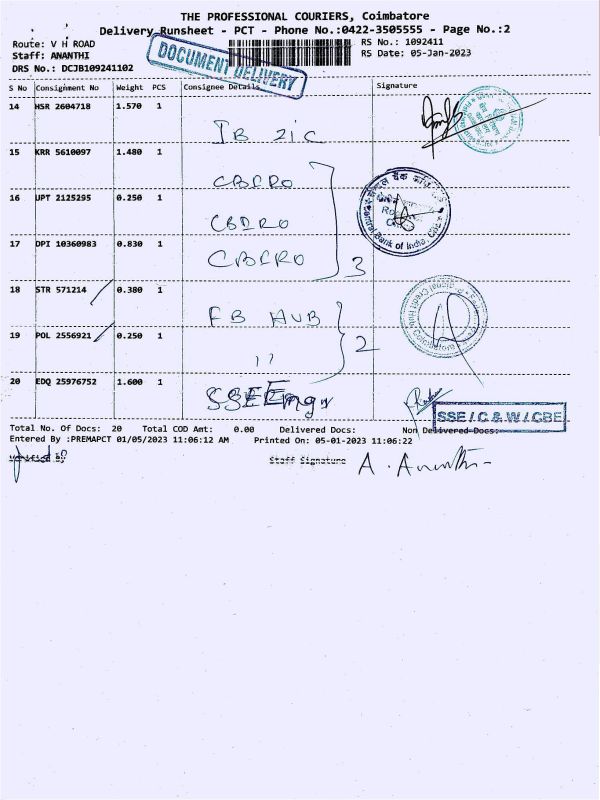 THE PROFESSIONAL COURIERS, Coimbatore
Delivery Runsheet - PCT - Phone No.:0422-3505555 - Page No.:2
Route: V H ROAD
RS No.: 1092411
Staff: ANANTHI
RS Date: 05-Jan-2023
DRS No.: DCJB109241102
DOCUMENT DELIVERY
S No Consignment No Weight PCS Consignee Details Signature
14 HSR 2604718 1.570 1
IB ZIC
15 KRR 5610097 1.480 1
CBCRO
16 UPT 2125295 0.250 1
CBCRO
17 DPI 10360983 0.830 1
CBCRO
3
Central Bank of India
18 STR 571214 0.380 1
FB HUB
19 POL 2556921 0.250 1
,,
2
20 EDQ 25976752 1.600 1
SSE Engr
SSE / C & W / CBE
Total No. Of Docs: 20 Total COD Amt: 0.00 Delivered Docs: Non Delivered Docs:
Entered By :PREMAPCT 01/05/2023 11:06:12 AM Printed On: 05-01-2023 11:06:22
Staff Signature A. Ananthi